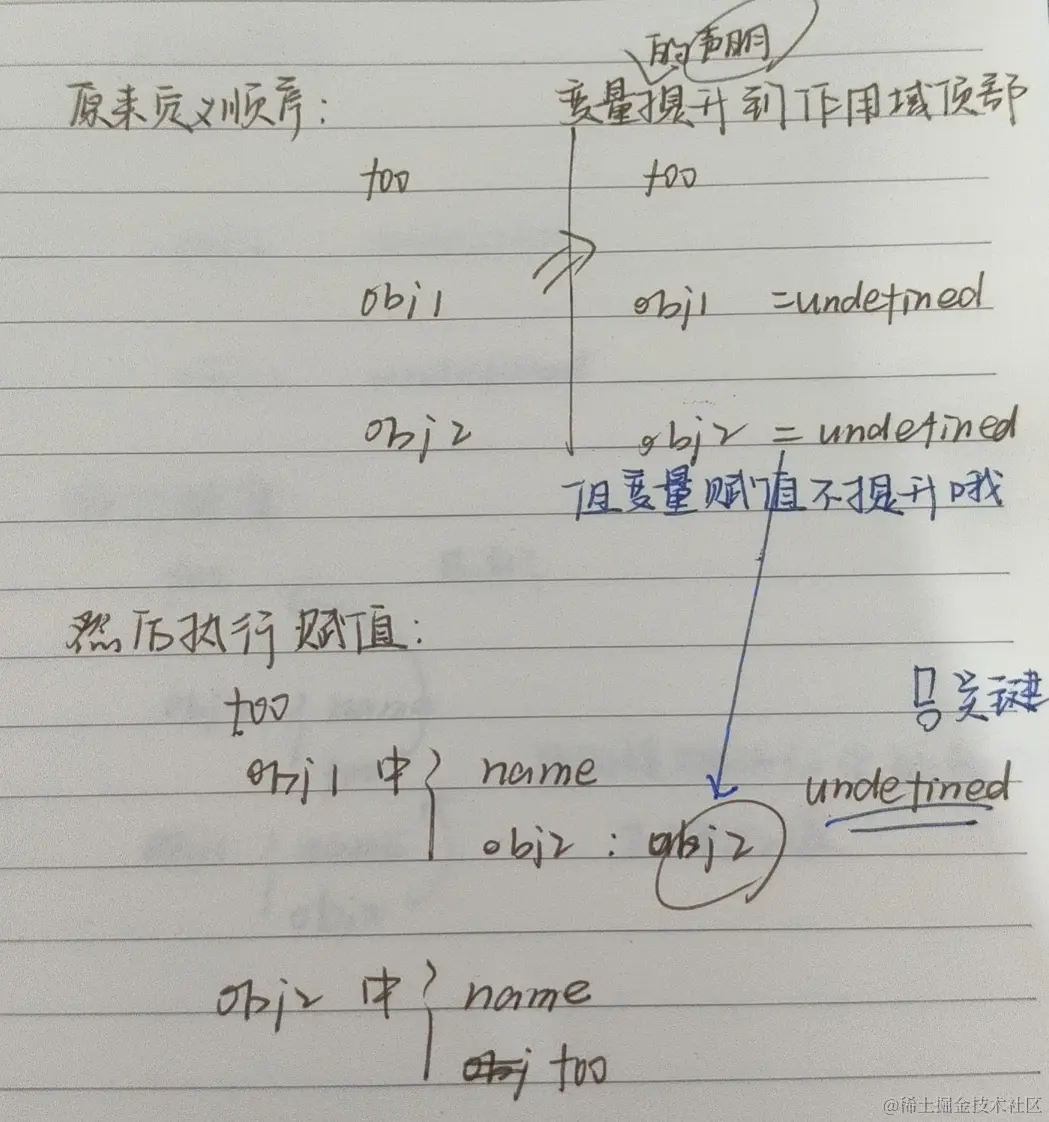 的声明
原来定义顺序: 变量提升到作用域顶部
foo foo
obj1 obj1 =undefined
obj2 obj2 = undefined
但变量赋值不提升哦
然后执行赋值:
foo
关键
obj1 中 name undefined
obj2 : obj2
obj2 中 name
obj foo
@稀土掘金技术社区